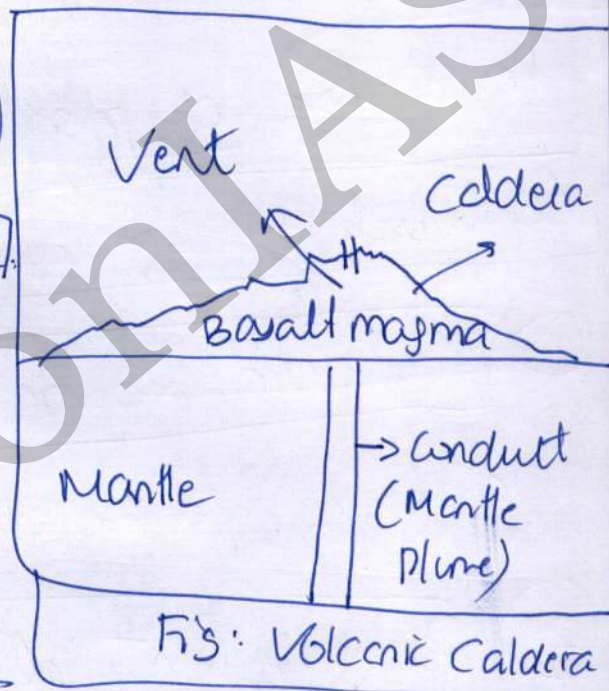 Vent
Caldera
Basalt magma
Mantle
Conduit
(Mantle
Plume)
Fig: Volcanic Caldera
onIAS